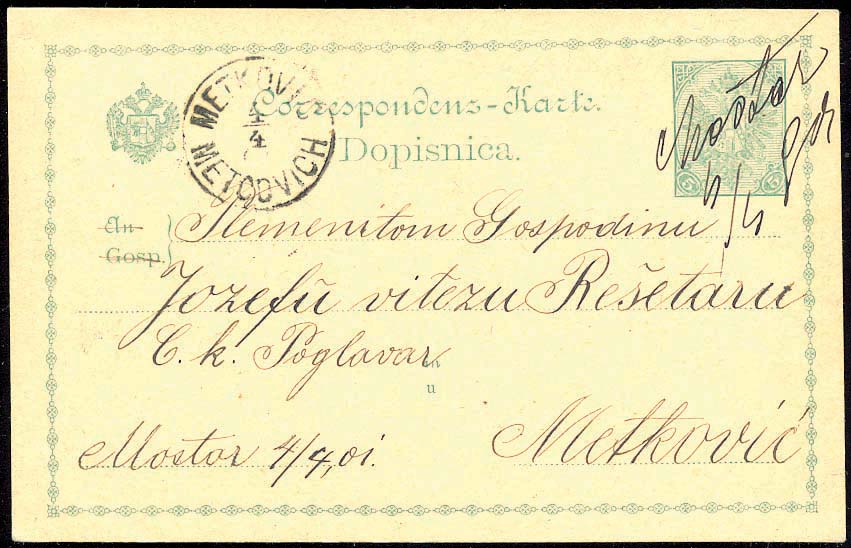 Correspondenz-Karte.
Dopisnica.
METKOVI
4
4
METCOVICH
5 5
Mostar
4/4 901
An
Gosp.
Plemenitom Gospodinu
Jozefu vitezu Rešetaru
C. k. Poglavar
in
u
Metković
Mostar 4/4, 01.